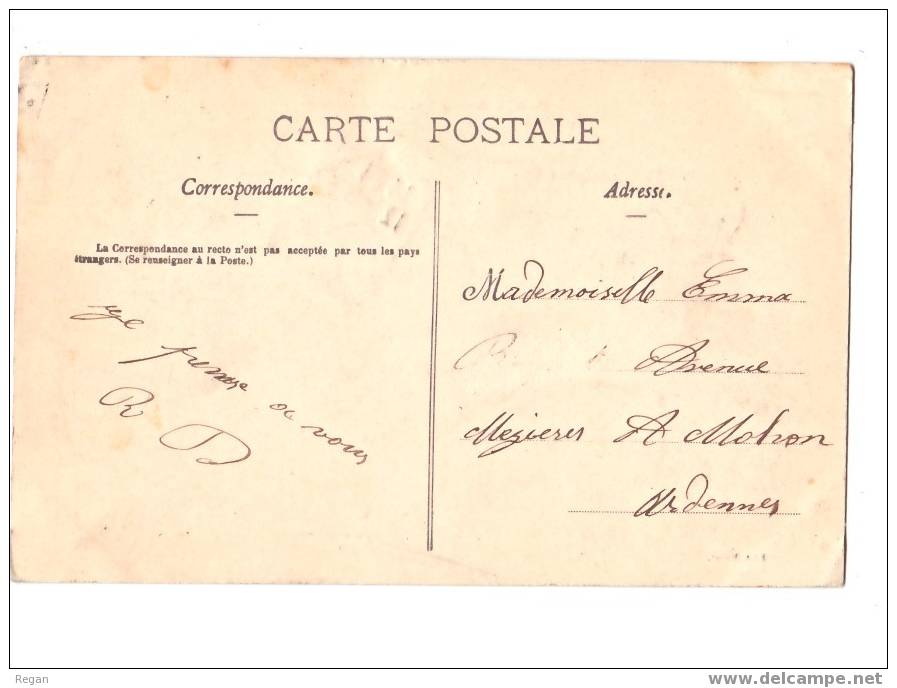 CARTE POSTALE
Correspondance.
La Correspondance au recto n'est pas acceptée par tous les pays
étrangers. (Se renseigner à la Poste.)
pense a vous
R D
Adresse.
Mademoiselle Emma
Avenue
Mezieres A Mohon
Ardennes
Regan
www.delcampe.net